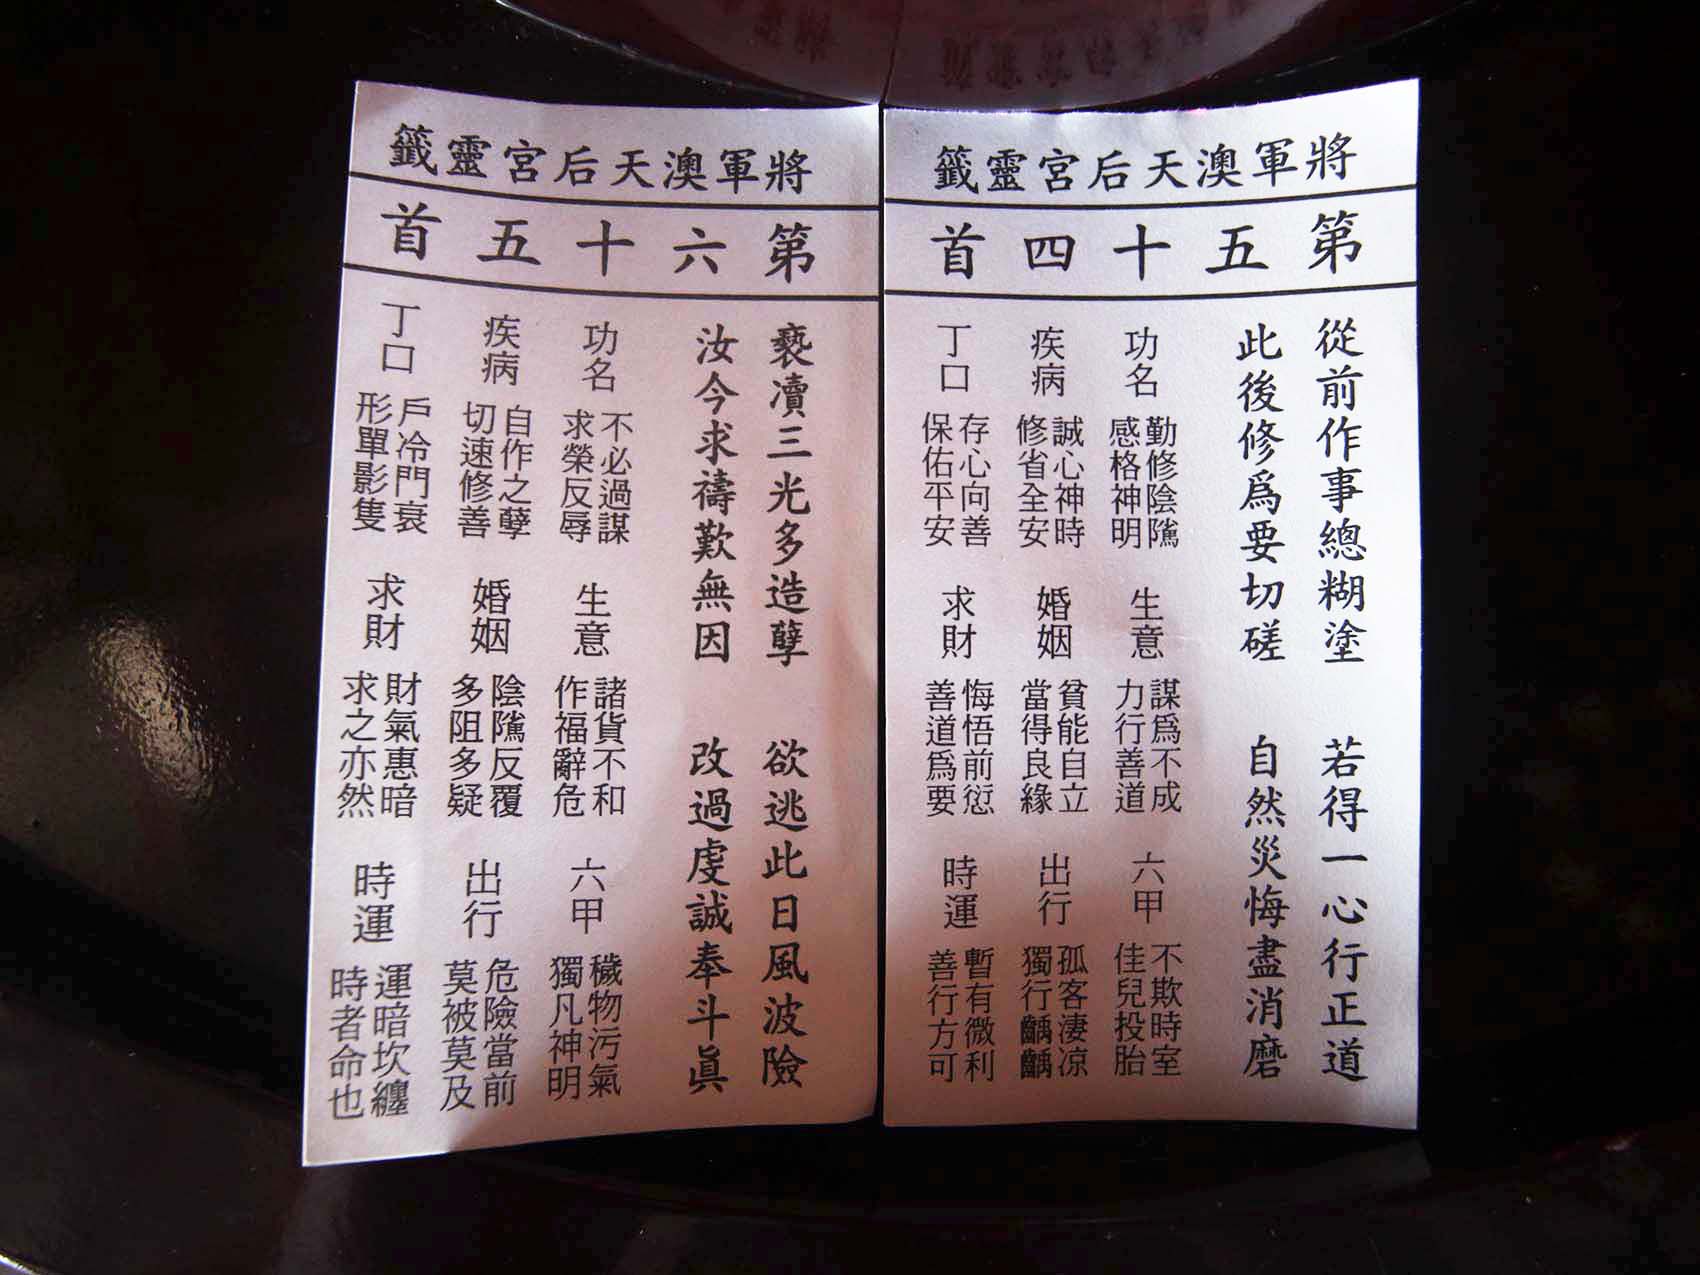 將軍澳天后宮靈籤
第五十四首
從前作事總糊塗　若得一心行正道
此後修爲要切磋　自然災悔盡消磨
功名　勤修陰騭
感格神明
生意　謀爲不成
力行善道
六甲　不欺時室
佳兒投胎
疾病　誠心神時
修省全安
婚姻　貧能自立
當得良緣
出行　孤客淒凉
獨行齲齲
丁口　存心向善
保佑平安
求財　悔悟前愆
善道爲要
時運　暫有微利
善行方可
將軍澳天后宮靈籤
第六十五首
褻瀆三光多造孽　欲逃此日風波險
汝今求禱歎無因　改過虔誠奉斗眞
功名　不必過謀
求榮反辱
生意　諸貨不和
作福辭危
六甲　穢物污氣
獨凡神明
疾病　自作之孽
切速修善
婚姻　陰騭反覆
多阻多疑
出行　危險當前
莫被莫及
丁口　戶冷門衰
形單影隻
求財　財氣惠暗
求之亦然
時運　運暗坎纏
時者命也